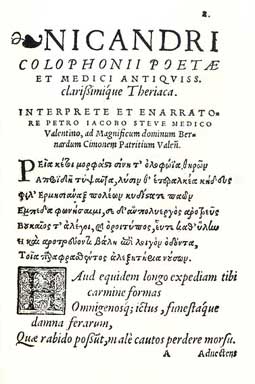 2.
NICANDRI
COLOPHONII POETÆ
ET MEDICI ANTIQVISS.
clarißimíque Theriaca.
INTERPRETE ET ENARRATO-
RE PETRO IACOBO STEVE MEDICO
Valentino, ad Magnificum dominum Ber-
nardum Cimonem Patritium Valen̄.
Ρεῖά κέ τοι μορφάς τε σίνη τ' ὀλοφώϊα θηρῶν
Ἀπροϊδῆ τύψαντα, λύσιν θ' ἑτεραλκέα κήδευς
Φίλ' Ἑρμησιάναξ πολέων κυδίστατε παῶν
Ἔμπεδα φωνήσαιμι, σὲ δ' ἂν πολύεργος ἀροτρεύς
Βουκαῖός τ' ἀλέγοι, καὶ ὀροιτύπος, εὖτε καθ' ὕλην
Ἢ καὶ ἀροτρεύοντι βάλῃ ἐπὶ λοιγὸν ὀδόντα,
Τοῖα περιφρασθέντος ἀλεξητήρια νούσων.
HAud equidem longo expediam tibi
carmine formas
Omnigenosq; ictus, funestáque
damna ferarum,
Quæ rabido possūt, m alè cautos perdere morsu.
A Aduectens